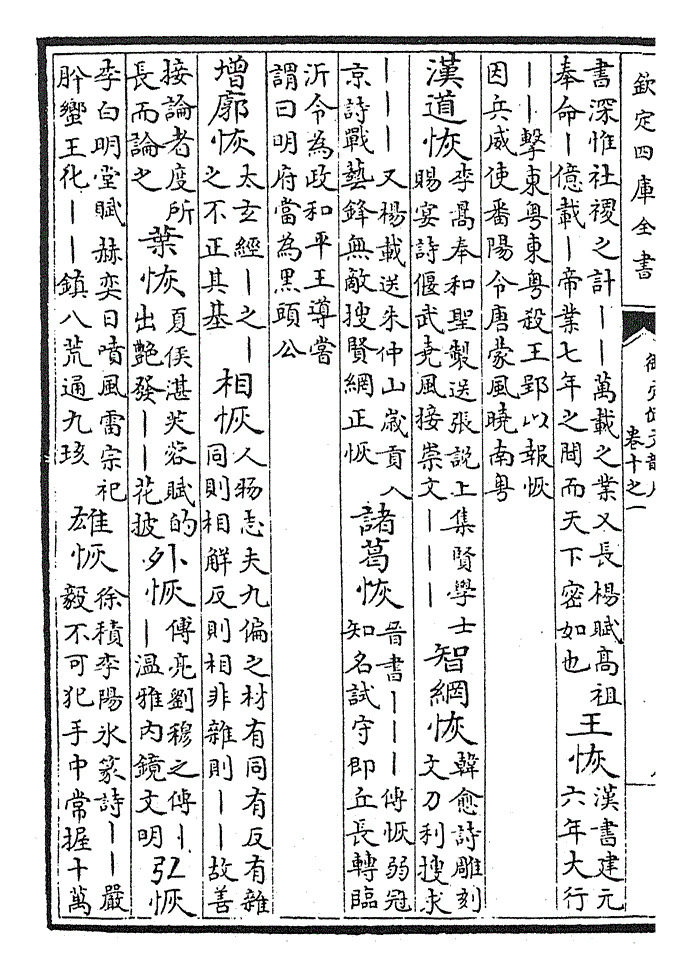 欽定四庫全書
卷十之一
書深惟社稷之計丨丨萬載之業又長楊賦高祖
奉命丨億載丨帝業七年之間而天下密如也
王恢
漢書建元
六年大行
丨丨擊東粤東粤殺王郢以報恢
因兵威使番陽令唐蒙風曉南粤
漢道恢
李暠奉和聖製送張說上集賢學士
賜宴詩偃武堯風接崇文丨丨丨
智網恢
韓愈詩雕刻
文刀利搜求
丨丨丨
又楊載送朱仲山歲貢入
京詩戰藝鋒無敵搜賢網正恢
諸葛恢
晉書丨丨丨傳恢弱冠
知名試守即丘長轉臨
沂令為政和平王導嘗
謂曰明府當為黑頭公
增廓恢
太玄經丨之丨
之不正其基
相恢
人物志夫九偏之材有同有反有雜
同則相解反則相非雜則丨丨故善
接論者度所
長而論之
葉恢
夏侯湛芙蓉賦的
出艷發丨丨花披
外恢
傅亮劉穆之傳丨
丨溫雅內鏡文明
弘恢
李白明堂賦赫奕日噴風雷宗祀
肸蠁王化丨丨鎮八荒通九垓
雄恢
徐積李陽氷篆詩丨丨嚴
毅不可犯手中常握十萬